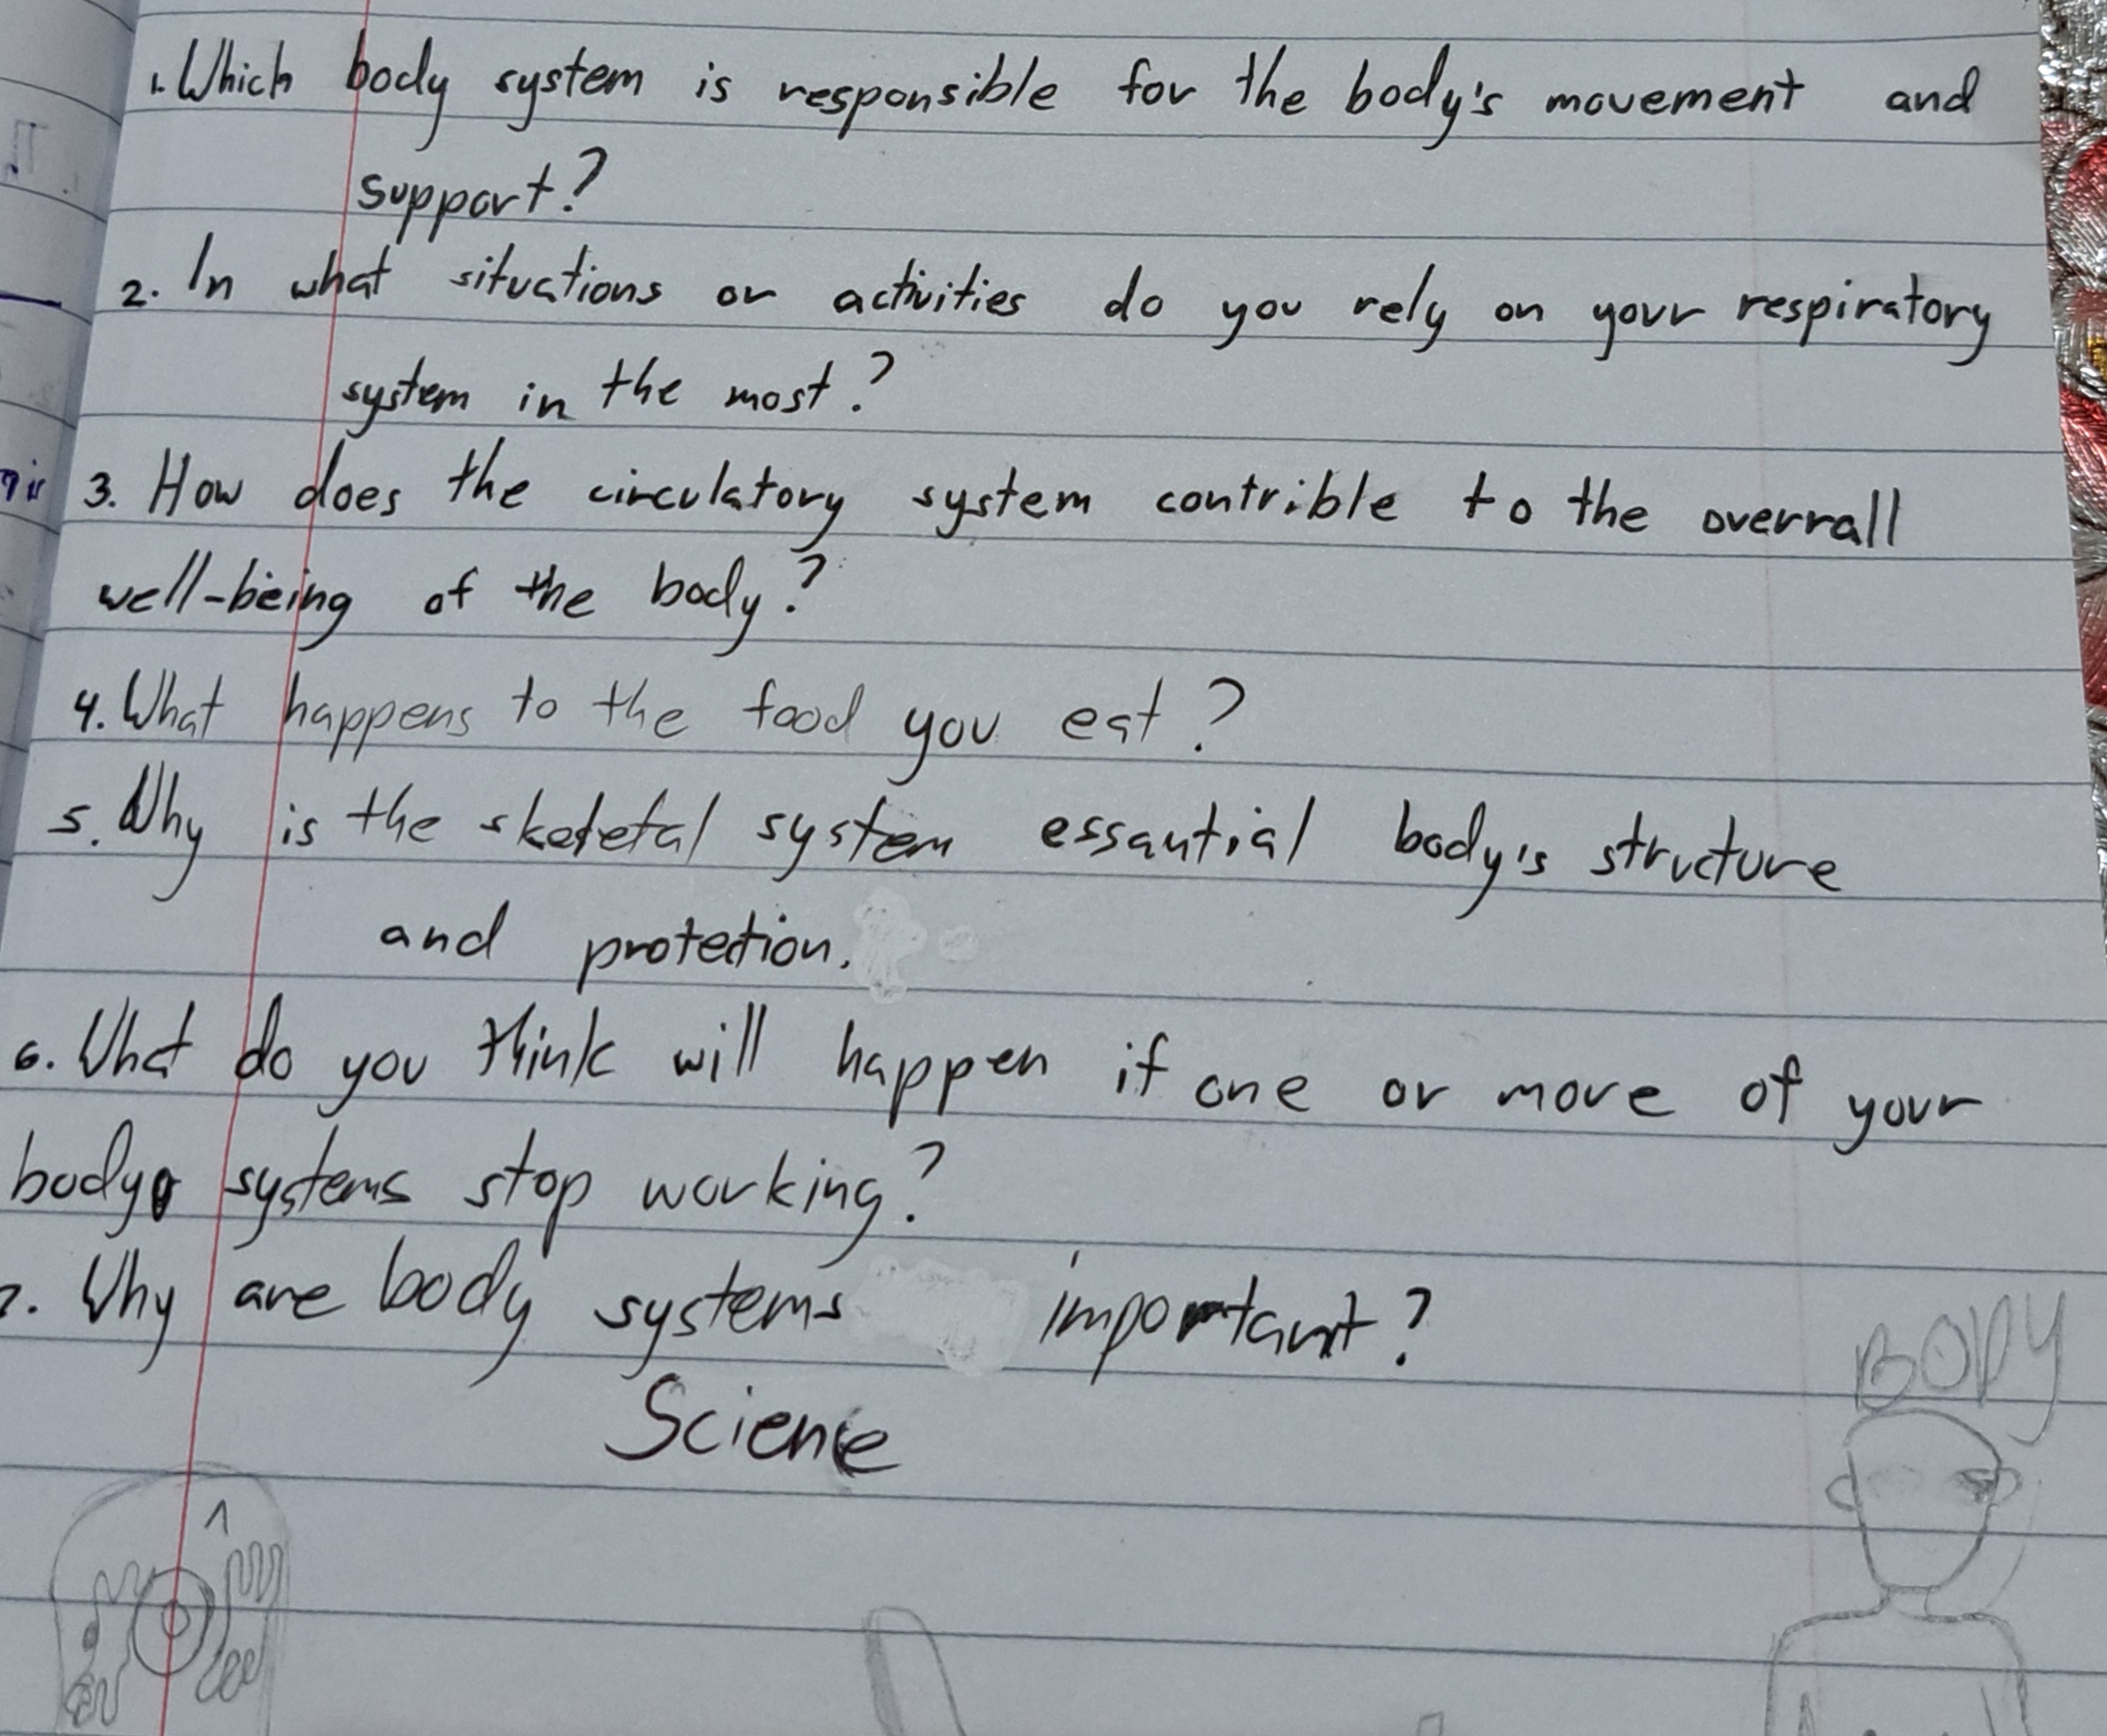 1. Which body system is responsible for the body's movement and
support?
2. In what situations or activities do you rely on your respiratory
system in the most?
3. How does the circulatory system contrible to the overrall
well-being of the body?
4. What happens to the food you eat?
5. Why is the skeletal system essantial body's structure
and protection.
6. What do you think will happen if one or more of your
body systems stop working?
7. Why are body systems important?
Science
BODY